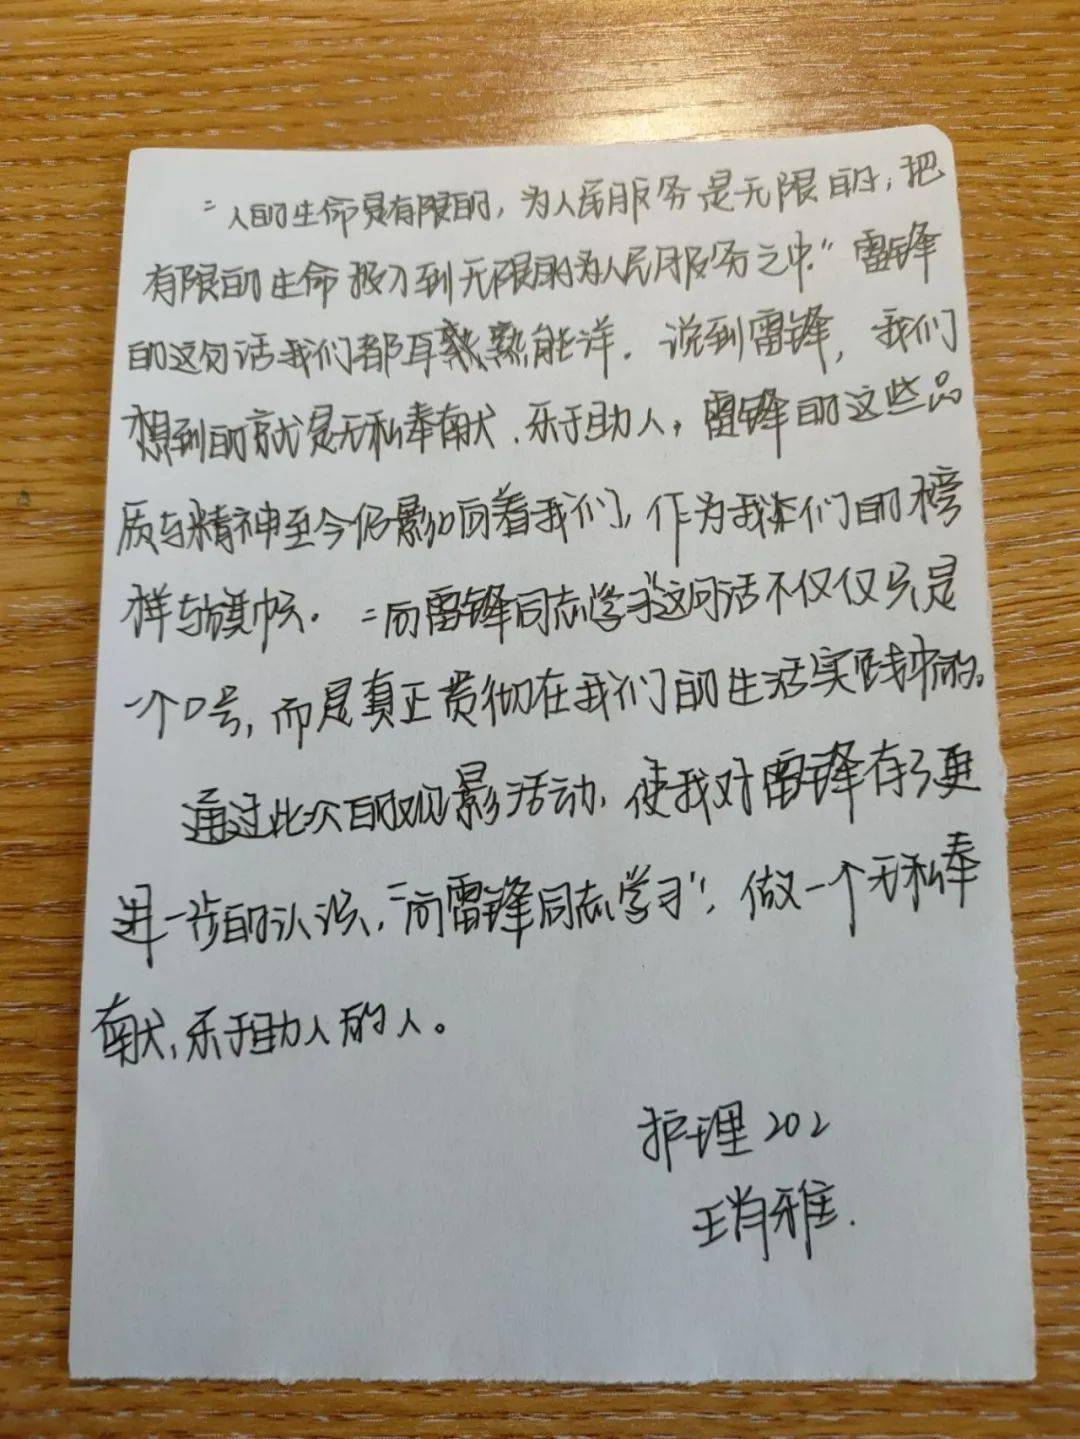 “人的生命是有限的，为人民服务是无限的；把
有限的生命投入到无限的为人民服务之中.”雷锋
的这句话我们都耳熟熟能详．说到雷锋，我们
想到的就是无私奉献、乐于助人，雷锋的这些品
质与精神至今仍影响着我们，作为我们的榜
样与旗帜．“向雷锋同志学习这句话不仅仅只是
一个口号，而是真正贯彻在我们的生活实践中的。
通过此次的观影活动，使我对雷锋有了更
进一步的认识，“向雷锋同志学习”，做一个无私奉
献，乐于助人的人。
护理202
王肖雅.